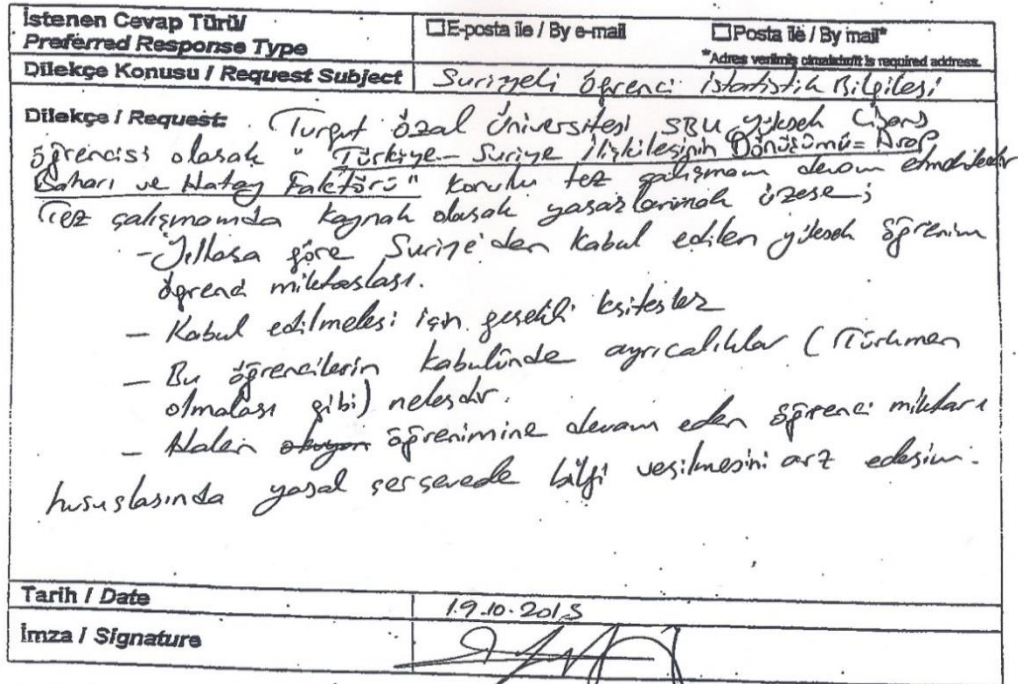 İstenen Cevap Türü/ ☐E-posta ile / By e-mail ☐Posta ile / By mail*
Preferred Response Type *Adres verilmiş olmalıdır/It is required address.
Dilekçe Konusu / Request Subject Suriyeli öğrenci istatistik Bilgileri
Dilekçe / Request: Turgut özal Üniversitesi SBU yüksek Lisans
öğrencisi olarak " Türkiye - Suriye İlişkilerinin Dönüşümü= Arap
Baharı ve Hatay Faktörü" konulu tez çalışmam devam etmektedir
Tez çalışmamda kaynak olarak yararlanmak üzere;
-Yıllara göre Suriye'den kabul edilen yüksek öğrenim
öğrenci miktarları.
- Kabul edilmeleri için gerekli kriterler
- Bu öğrencilerin kabulünde ayrıcalıklar (Türkmen
olmaları gibi) nelerdir.
- Halen okuyan öğrenimine devam eden öğrenci miktarı
hususlarında yasal çerçevede bilgi verilmesini arz ederim.
Tarih / Date 19.10.2015
İmza / Signature